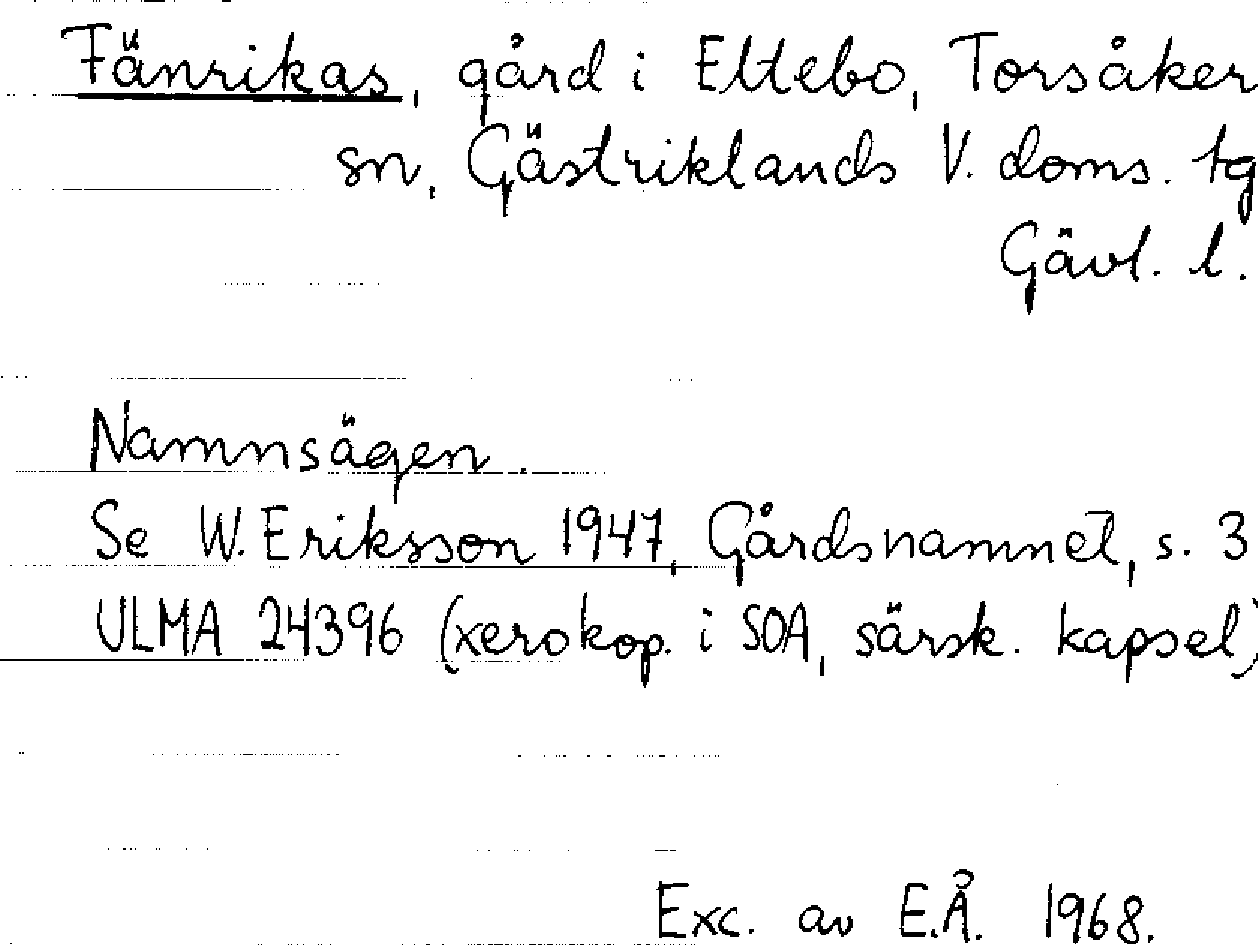 Fänrikas, gård i Eltebo, Torsåker
sn, Gästriklands V. doms. tg
Gävl. l.
Namnsägen.
Se W. Eriksson 1947, Gårdsnamnet, s. 3
ULMA 24396 (xerokop. i SOA, särsk. kapsel)
Exc. av E.Å. 1968.